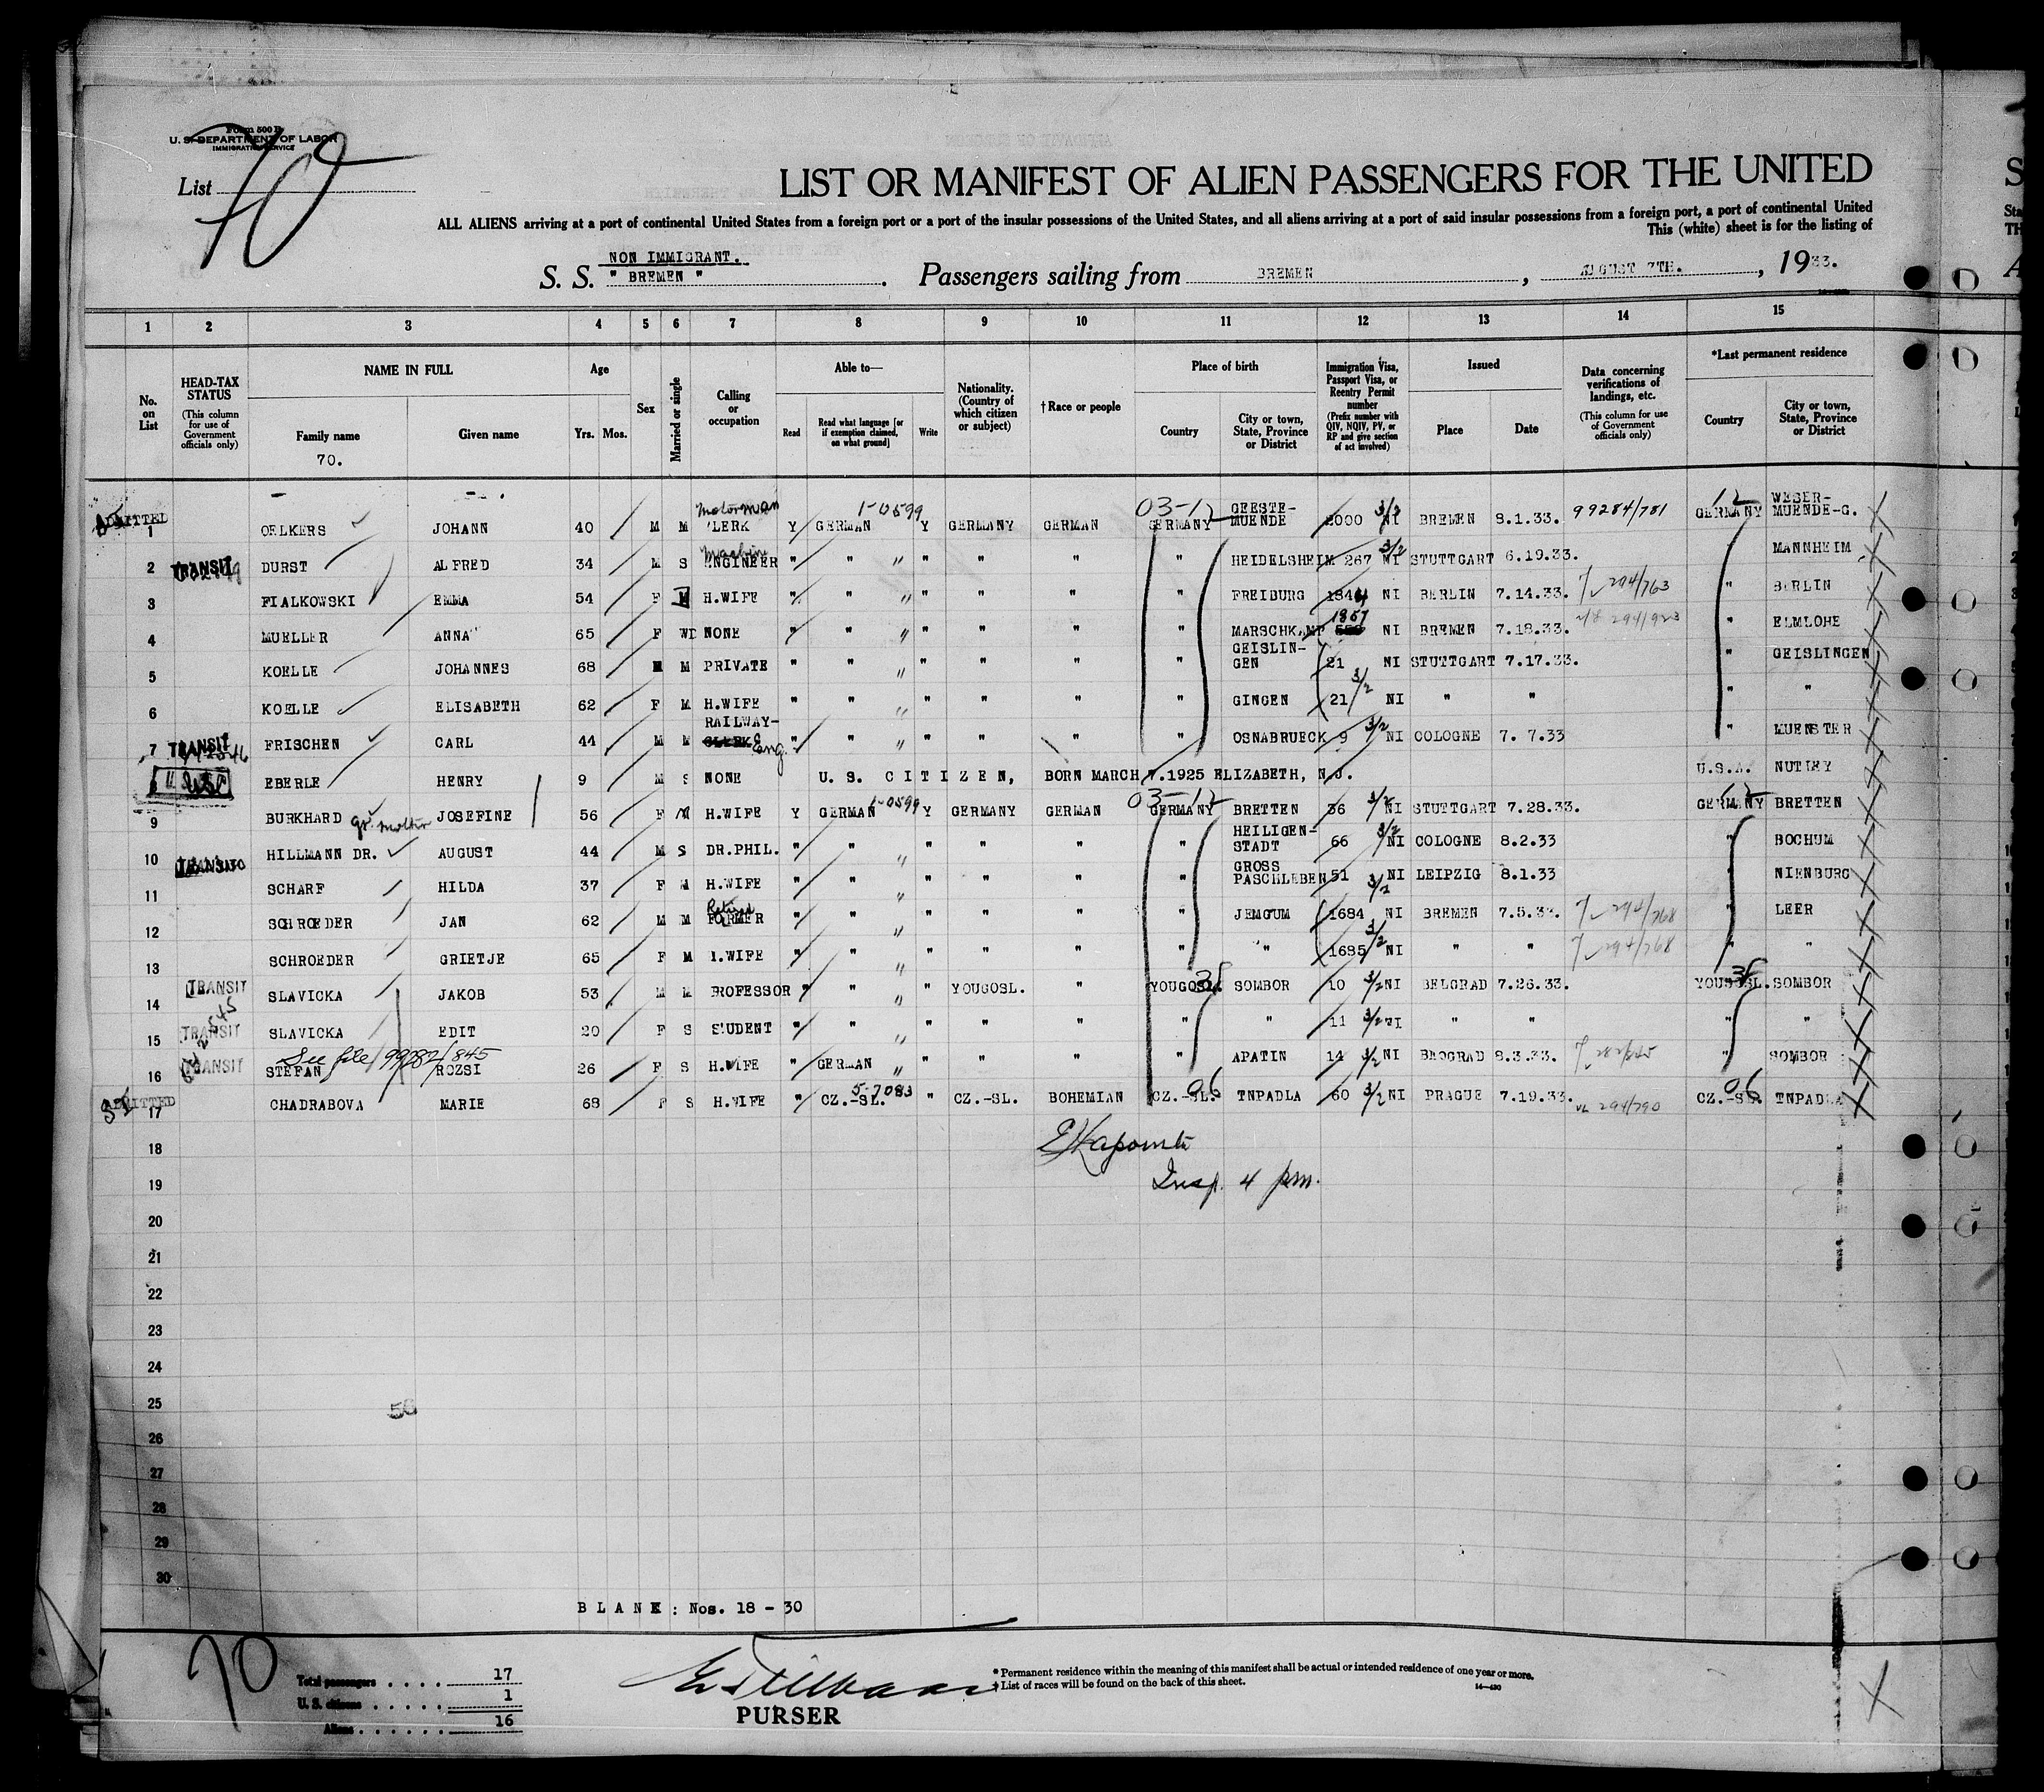 Form 500 B
U. S. DEPARTMENT OF LABOR
IMMIGRATION SERVICE
List 70
LIST OR MANIFEST OF ALIEN PASSENGERS FOR THE UNITED
ALL ALIENS arriving at a port of continental United States from a foreign port or a port of the insular possessions of the United States, and all aliens arriving at a port of said insular possessions from a foreign port, a port of continental United
This (white) sheet is for the listing of
NON IMMIGRANT.
S. S. " BREMEN " . Passengers sailing from BREMEN , AUGUST 7TH. , 1933.
1 2 3 4 5 6 7 8 9 10 11 12 13 14 15
No. on List
HEAD-TAX STATUS (This column for use of Government officials only)
NAME IN FULL
Family name
70.
Given name
Age
Yrs. Mos.
Sex
Married or single
Calling or occupation
Able to—
Read
Read what language [or if exemption claimed, on what ground]
Write
Nationality. (Country of which citizen or subject)
†Race or people
Place of birth
Country
City or town, State, Province or District
Immigration Visa, Passport Visa, or Reentry Permit number (Prefix number with QIV, NQIV, PV, or RP and give section of act involved)
Issued
Place
Date
Data concerning verifications of landings, etc. (This column for use of Government officials only)
*Last permanent residence
Country
City or town, State, Province or District
ADMITTED 1 OELKERS JOHANN 40 M M Motorman CLERK Y GERMAN 1-0599 Y GERMANY GERMAN 03-12 GERMANY GEESTE-MUENDE 2000 3/2 NI BREMEN 8.1.33. 99284/781 12 GERMANY WESER-MUENDE-G.
2 TRANSIT DURST ALFRED 34 M S Machine ENGINEER " " " " " " HEIDELSHEIM 267 3/2 NI STUTTGART 6.19.33. MANNHEIM
3 FIALKOWSKI EMMA 54 F M H.WIFE " " " " " " FREIBURG 1844 NI BERLIN 7.14.33. 294/763 " BERLIN
4 MUELLER ANNA 65 F WD NONE " " " " " " MARSCHKAMP 1857 NI BREMEN 7.18.33. 294/923 " ELMLOHE
5 KOELLE JOHANNES 68 M M PRIVATE " " " " " " GEISLIN-GEN 21 NI STUTTGART 7.17.33. " GEISLINGEN
6 KOELLE ELISABETH 62 F M H.WIFE " " " " " " GINGEN 21 3/2 NI " " " "
7 TRANSIT FRISCHEN CARL 44 M M RAILWAY- CLERK Eng. " " " " " " OSNABRUECK 9 3/2 NI COLOGNE 7. 7.33 " MUENSTER
8 EBERLE HENRY 9 M S NONE U. S. CITIZEN, BORN MARCH 7.1925 ELIZABETH, N.J. U.S.A. NUTLEY
9 BURKHARD gr. mother JOSEFINE 56 F M H.WIFE Y GERMAN 1-0599 Y GERMANY GERMAN 03-12 GERMANY BRETTEN 36 3/2 NI STUTTGART 7.28.33. 12 GERMANY BRETTEN
10 TRANSIT HILLMANN DR. AUGUST 44 M S DR.PHIL. " " " " " " HEILIGEN-STADT 66 3/2 NI COLOGNE 8.2.33 " BOCHUM
11 SCHARF HILDA 37 F M H.WIFE " " " " " " GROSS PASCHLEBEN 51 3/2 NI LEIPZIG 8.1.33 " NIENBURG
12 SCHROEDER JAN 62 M M Retired FORMER " " " " " " JEMGUM 1684 NI BREMEN 7.5.33. 294/768 " LEER
13 SCHROEDER GRIETJE 65 F M H.WIFE " " " " " " " 1685 3/2 NI " " 294/768 " "
14 TRANSIT SLAVICKA JAKOB 53 M M PROFESSOR " " " YOUGOSL. " YOUGOSL. 35 SOMBOR 10 3/2 NI BELGRAD 7.26.33. YOUGOSL. 35 SOMBOR
15 TRANSIT SLAVICKA EDIT 20 F S STUDENT " " " " " " " 11 3/2 NI " " " "
See file 99282/845
16 TRANSIT STEFAN ROZSI 26 F S H.WIFE " GERMAN " " " " APATIN 14 3/2 NI BEOGRAD 8.3.33. " SOMBOR
SI ADMITTED 17 CHADRABOVA MARIE 68 F S H.WIFE " CZ.-SL. 5-7083 " CZ.-SL. BOHEMIAN CZ.-SL. 06 TNPADLA 60 3/2 NI PRAGUE 7.19.33. VL 294/790 CZ.-SL. 06 TNPADLA
18
Insp. 4 pm.
19
20
21
22
23
24
25
26
27
28
29
30
BLANK: Nos. 18 - 30
70
Total passengers 17
U. S. citizens 1
Aliens 16
PURSER
* Permanent residence within the meaning of this manifest shall be actual or intended residence of one year or more.
† List of races will be found on the back of this sheet.
14—430